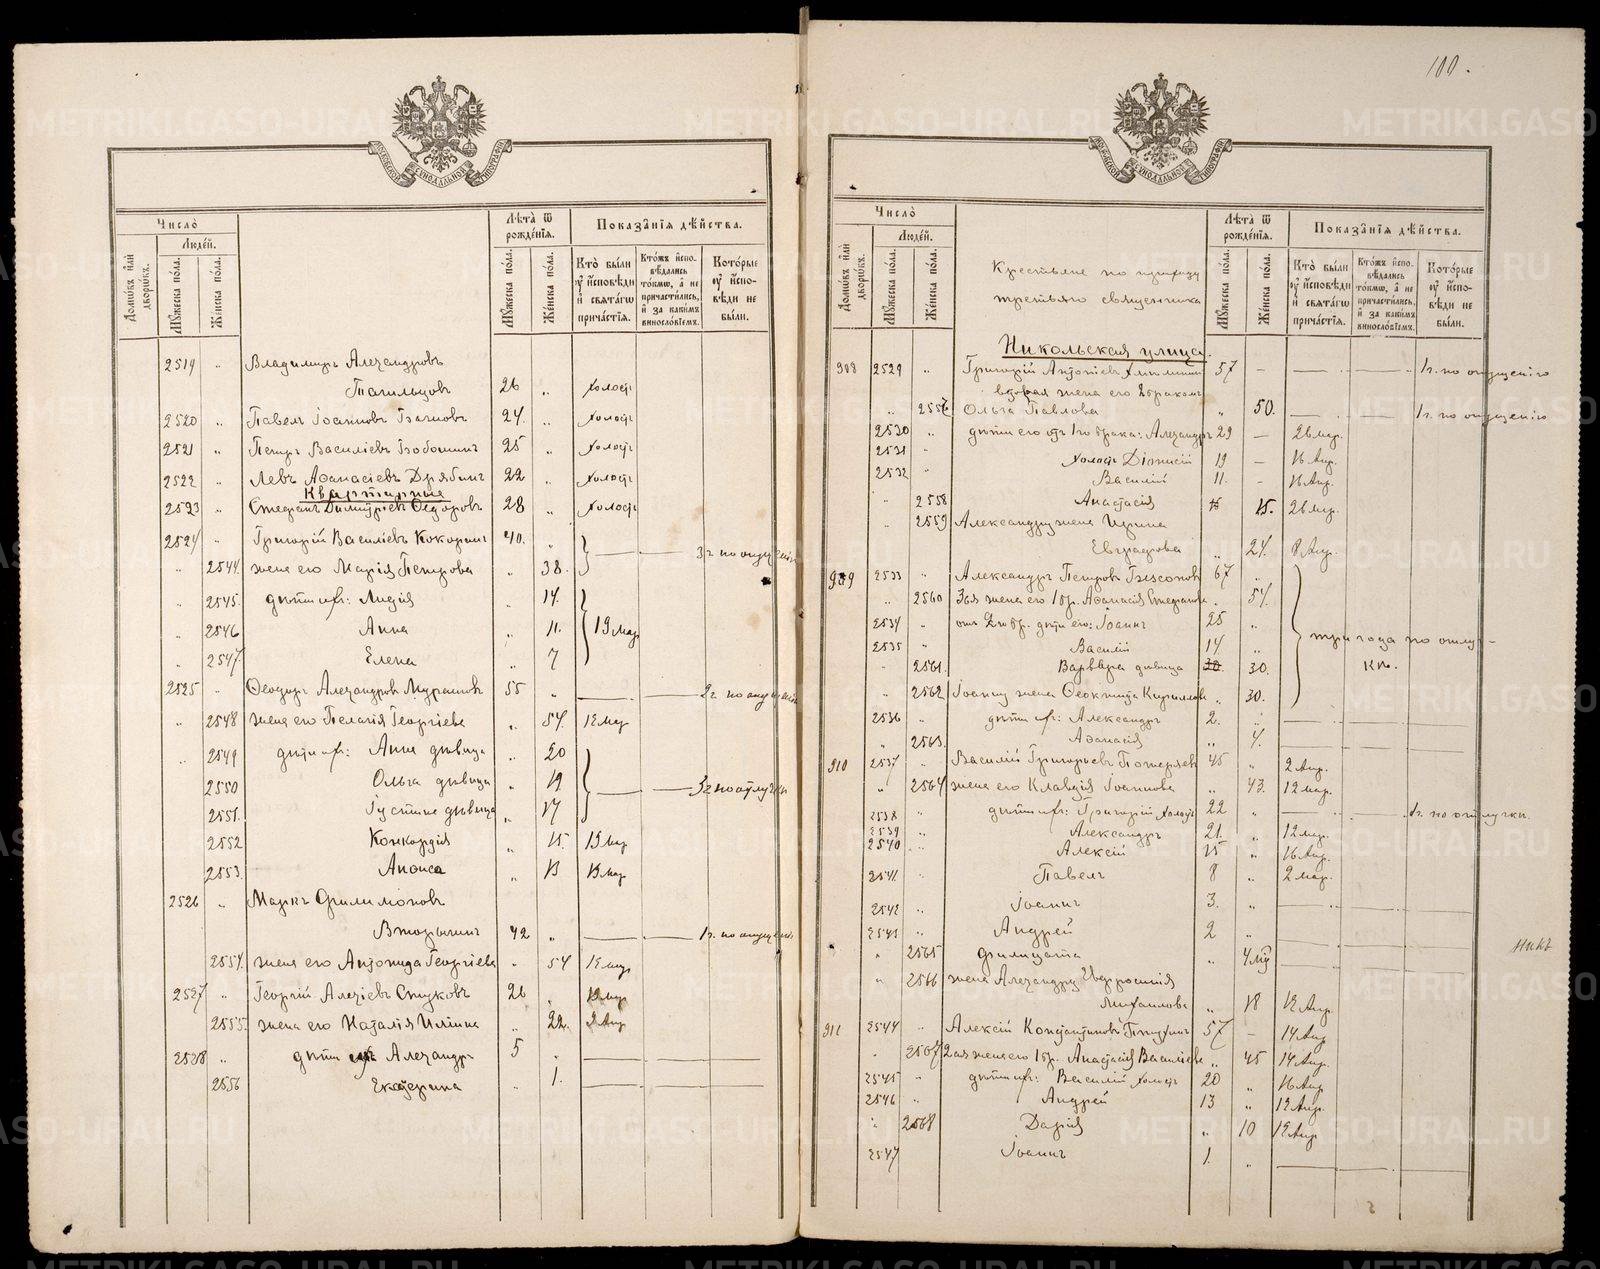 100.
METRIKI.GASO-URAL.RU
МОСКОВСКОЙ СѴНОДАЛЬНОЙ ТИПОГРАФІИ
Число̀
Людéй.
Домѡ́въ и҆лѝ дворѡ́въ.
Мꙋ́жеска по́ла.
Же́нска по́ла.
Лѣ́та ѿ рожде́нїѧ.
Мꙋ́жеска по́ла.
Же́нска по́ла.
Показа̑нїѧ дѣ́йства.
Кто̀ бы́ли ᲂу҆ и҆́сповѣди и҆ свѧта́гѡ прича́стїѧ.
Кто́жъ и҆спо-
вѣ́дались
то́кмѡ, а҆ не
причасти́лись,
и҆ за каки́мъ
винословїемъ.
Кото́рые ᲂу҆ и҆́спо-
вѣди не
бы́ли.
2519 " Владимиръ Александровъ
26 " холостъ
2520 " Павелъ Іоанновъ 24. " холостъ
2521 " Петръ Василіевъ 25 " холостъ
2522 " Левъ Аѳанасіевъ Дрябинъ 22 " холостъ
Квартирные
2523 " Стефанъ Димитріевъ Ѳедоровъ 28 " холостъ
2524 " Григорій Василіевъ Кокоринъ 40. "
" 2544. жена его Марія Петрова " 38. 3 г. по опущенію
" 2545. дѣти ихъ: Лидія " 14.
" 2546 Анна " 11. 19 мар
" 2547. Елена " 7
2525 " Ѳеодоръ Александровъ 55 " 2 г. по опущенію
" 2548 жена его Пелагія Георгіева " 54. 12 мар
" 2549 дѣти ихъ: Анна дѣвица " 20
2550 Ольга дѣвица " 19 3 г. по отлучкѣ
2551. дѣвица " 17
2552 Конкордія " 15. 19 мар
2553. Анѳиса " 13 19 мар
2526 " Маркъ Филимоновъ
42 " 1 г. по опущенію
2554. жена его Георгіева " 54 12 мар
2527 " Георгій Алексіевъ Стуковъ 26 " 19 мар
2555. жена его Наталія Иліина " 22. 2 Апр
2528 " дѣти ихъ Александръ 5 "
2556 Екатерина " 1.
Крестьяне по приходу
третьяго священника
Никольская улица.
908 2529 " Григорій Антоніевъ 57 — 1 г. по опущенію
вторая жена его 2 бракомъ
" 2557. Ольга Павлова " 50. 1 г. по опущенію
2530 " дѣти его отъ 1го брака: Александръ 29 — 26 мар.
2531 холостъ Діонисій 19 — 16 Апр.
2532 " Василій 11. - 16 Апр.
" 2558 Анастасія 15. 26 мар.
" 2559 Александру жена Ирина
Евграфова " 24. 8 Апр.
909 2533 " Александръ Петровъ 67 "
" 2560 3ья жена его 1 бр. Аѳанасія Стефанова " 54.
2534 " отъ 2го бр. дѣти его: Іоаннъ 25 " три года по отлуч-
2535 " Василій 14. " кѣ.
" 2561. Варвара дѣвица 30.
" 2562 Іоанну жена Ѳеоктиста Кириллова " 30.
2536 " дѣти ихъ: Александръ 2. "
" 2563. Аѳанасія " 4.
910 2537 " Василій Григорьевъ 45 " 2 Апр.
" 2564 жена его Клавдія Іоаннова " 43. 12 мар.
2538 дѣти ихъ: Григорій холостъ 22 " 1 г. по отлучкѣ.
2539 " Александръ 21. " 12 мар.
2540 " Алексій 15 " 16 Апр.
2541. " Павелъ 8 " 2 мар.
2542 " Іоаннъ 3. "
2543 " Андрей 2 "
" 2565 Филицата " 4 мѣ
" 2566 жена Александру Евфросинія
Михаилова " 18 12 Апр.
911 2544 " Алексій Константиновъ 57 — 14 Апр
" 2567 2ая жена его 1 бр. Анастасія Василіева " 45 14 Апр.
2545 " дѣти ихъ: Василій холостъ 20 " 16 Апр
2546 " Андрей 13 " 12 Апр.
" 2568 Дарія " 10 12 Апр
2547 Іоаннъ 1. "